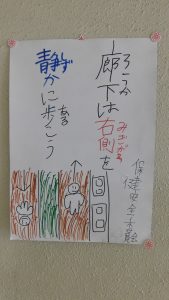 ろうか
廊下は右側を
みぎがわ
しず
静かに歩こう
ある
保健安全